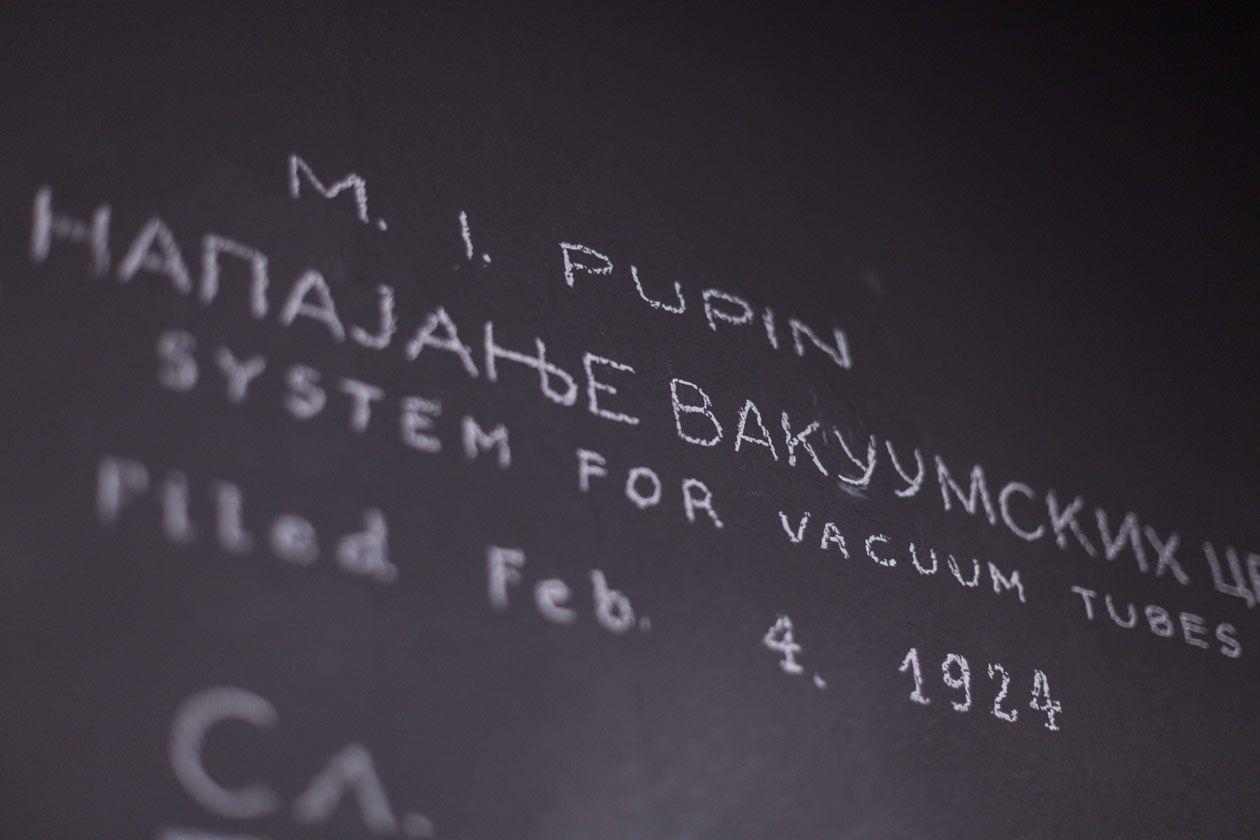 M. I. PUPIN
НАПАЈАЊЕ ВАКУУМСКИХ
SYSTEM FOR VACUUM TUBES
Filed Feb. 4. 1924
Сл.